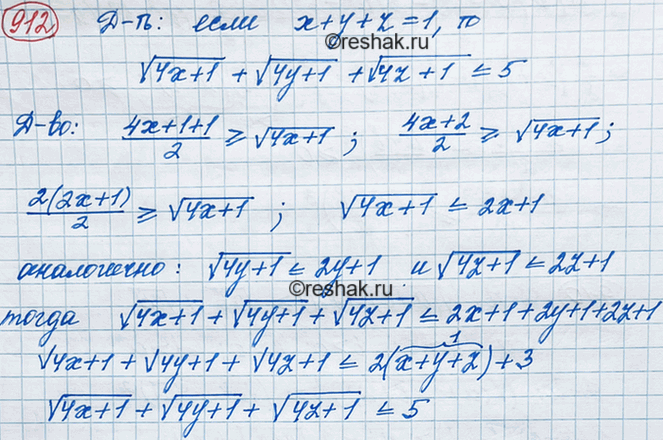 912 Д-ть: если x+y+z=1, то
©reshak.ru
√(4x+1) + √(4y+1) + √(4z+1) ≤ 5
Д-во: (4x+1+1)/2 ≥ √(4x+1) ; (4x+2)/2 ≥ √(4x+1) ;
2(2x+1)/2 ≥ √(4x+1) ; √(4x+1) ≤ 2x+1
аналогично: √(4y+1) ≤ 2y+1 и √(4z+1) ≤ 2z+1
©reshak.ru
тогда √(4x+1) + √(4y+1) + √(4z+1) ≤ 2x+1+2y+1+2z+1
1
√(4x+1) + √(4y+1) + √(4z+1) ≤ 2(x+y+z)+3
√(4x+1) + √(4y+1) + √(4z+1) ≤ 5